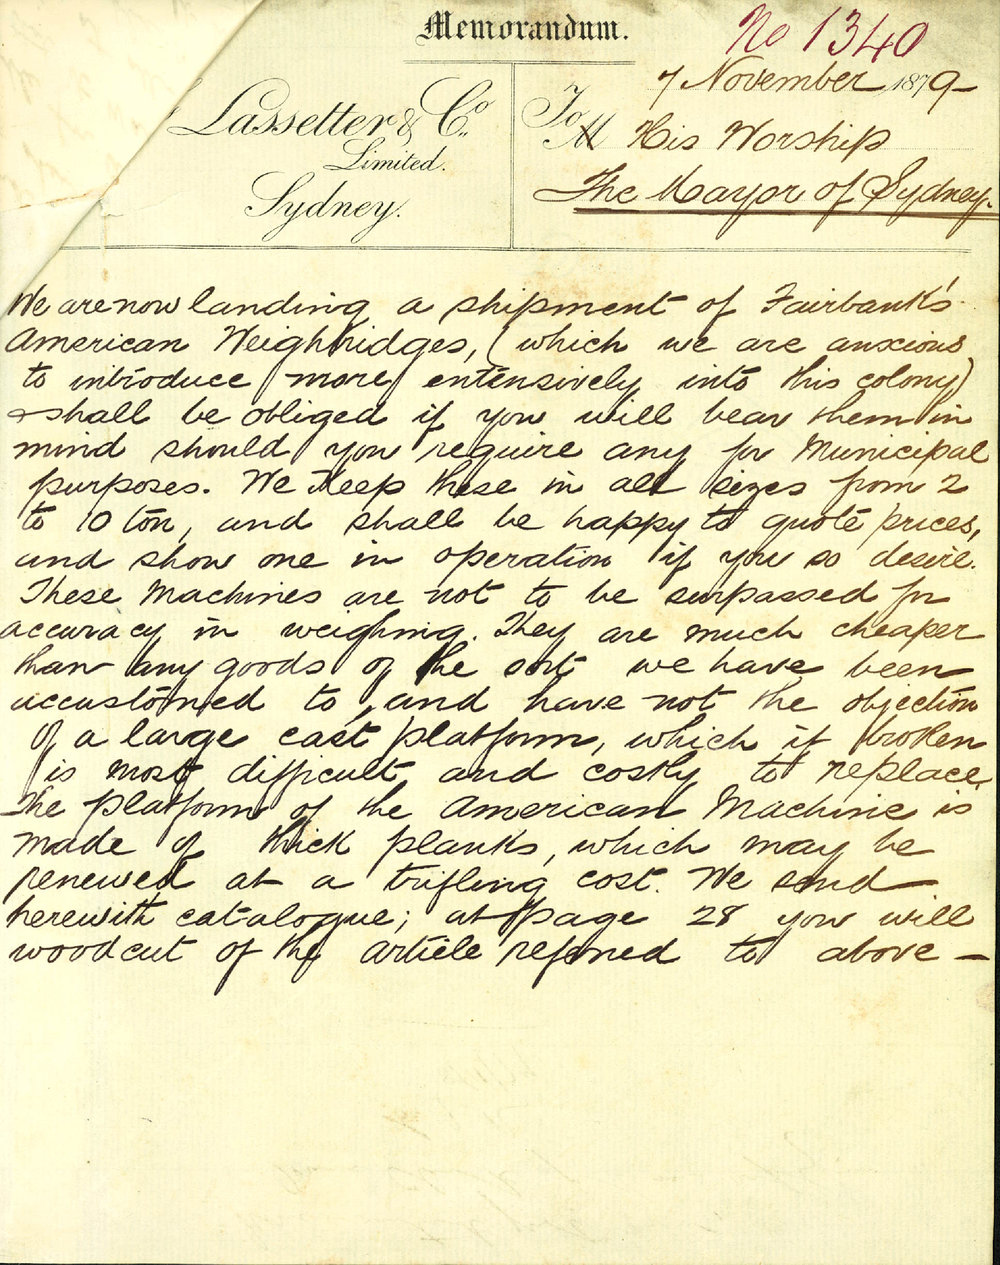 Memorandum.
No 1340
7 November 1879-
Lassetter & Co.
Limited.
Sydney.
To
M His Worship
The Mayor of Sydney.
We are now landing a shipment of Fairbank's
American Weighbridges, (which we are anxious
to introduce more extensively into this colony)
& shall be obliged if you will bear them in
mind should you require any for Municipal
purposes. We Keep these in all sizes from 2
to 10 ton, and shall be happy to quote prices,
and show one in operation if you so desire.
These Machines are not to be surpassed for
accuracy in weighing. They are much cheaper
than any goods of the sort we have been
accustomed to, and have not the objection
of a large cast platform, which if broken
is most difficult and costly to replace.
The platform of the American Machine is
made of thick planks, which may be
renewed at a trifling cost. We send
herewith catalogue; at page 28 you will
woodcut of the article referred to above -